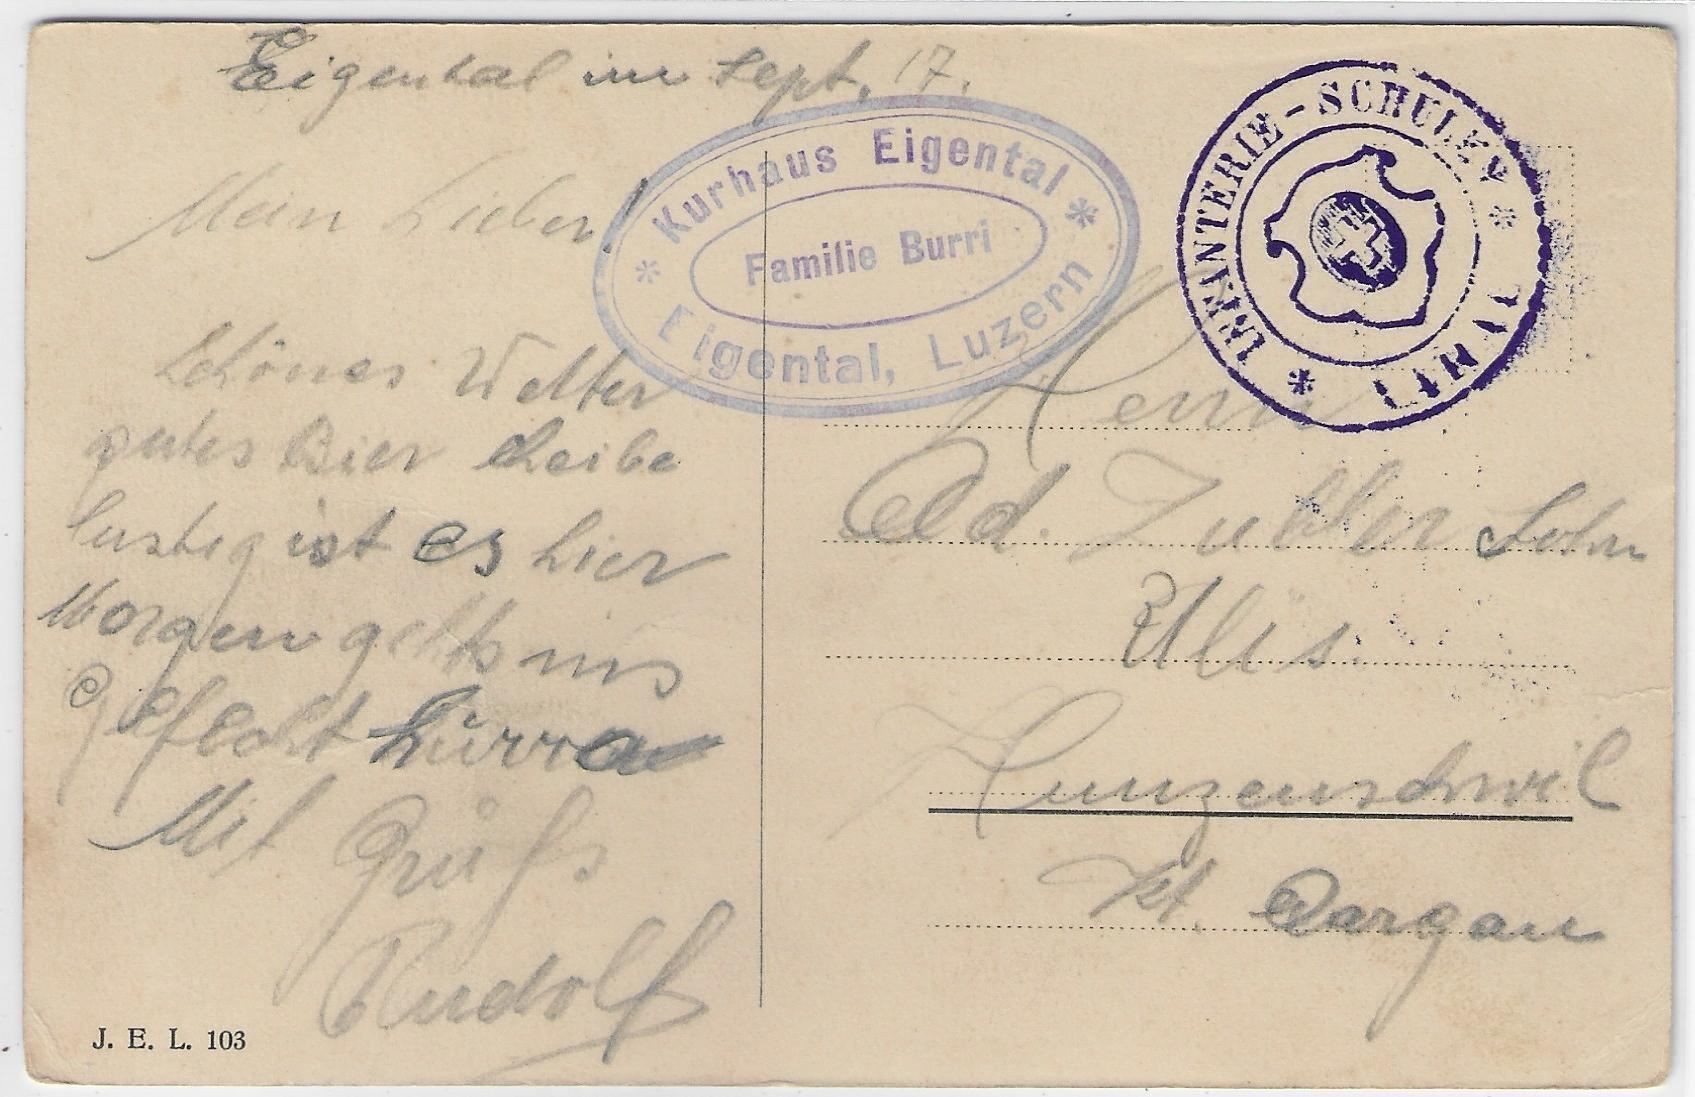 Eigental im Sept. 17.
Mein Lieber!
Schönes Wetter
gutes Bier cheibe
lustig ist es hier
Morgen gehts ins
Gefecht hurra
Mit Gruß
Rudolf
J. E. L. 103
* Kurhaus Eigental *
Familie Burri
Eigental, Luzern
INFANTERIE-SCHULEN
Herrn
Ad. Zubler Sohn
Ulis.
Hunzenschwil
Kt. Aargau